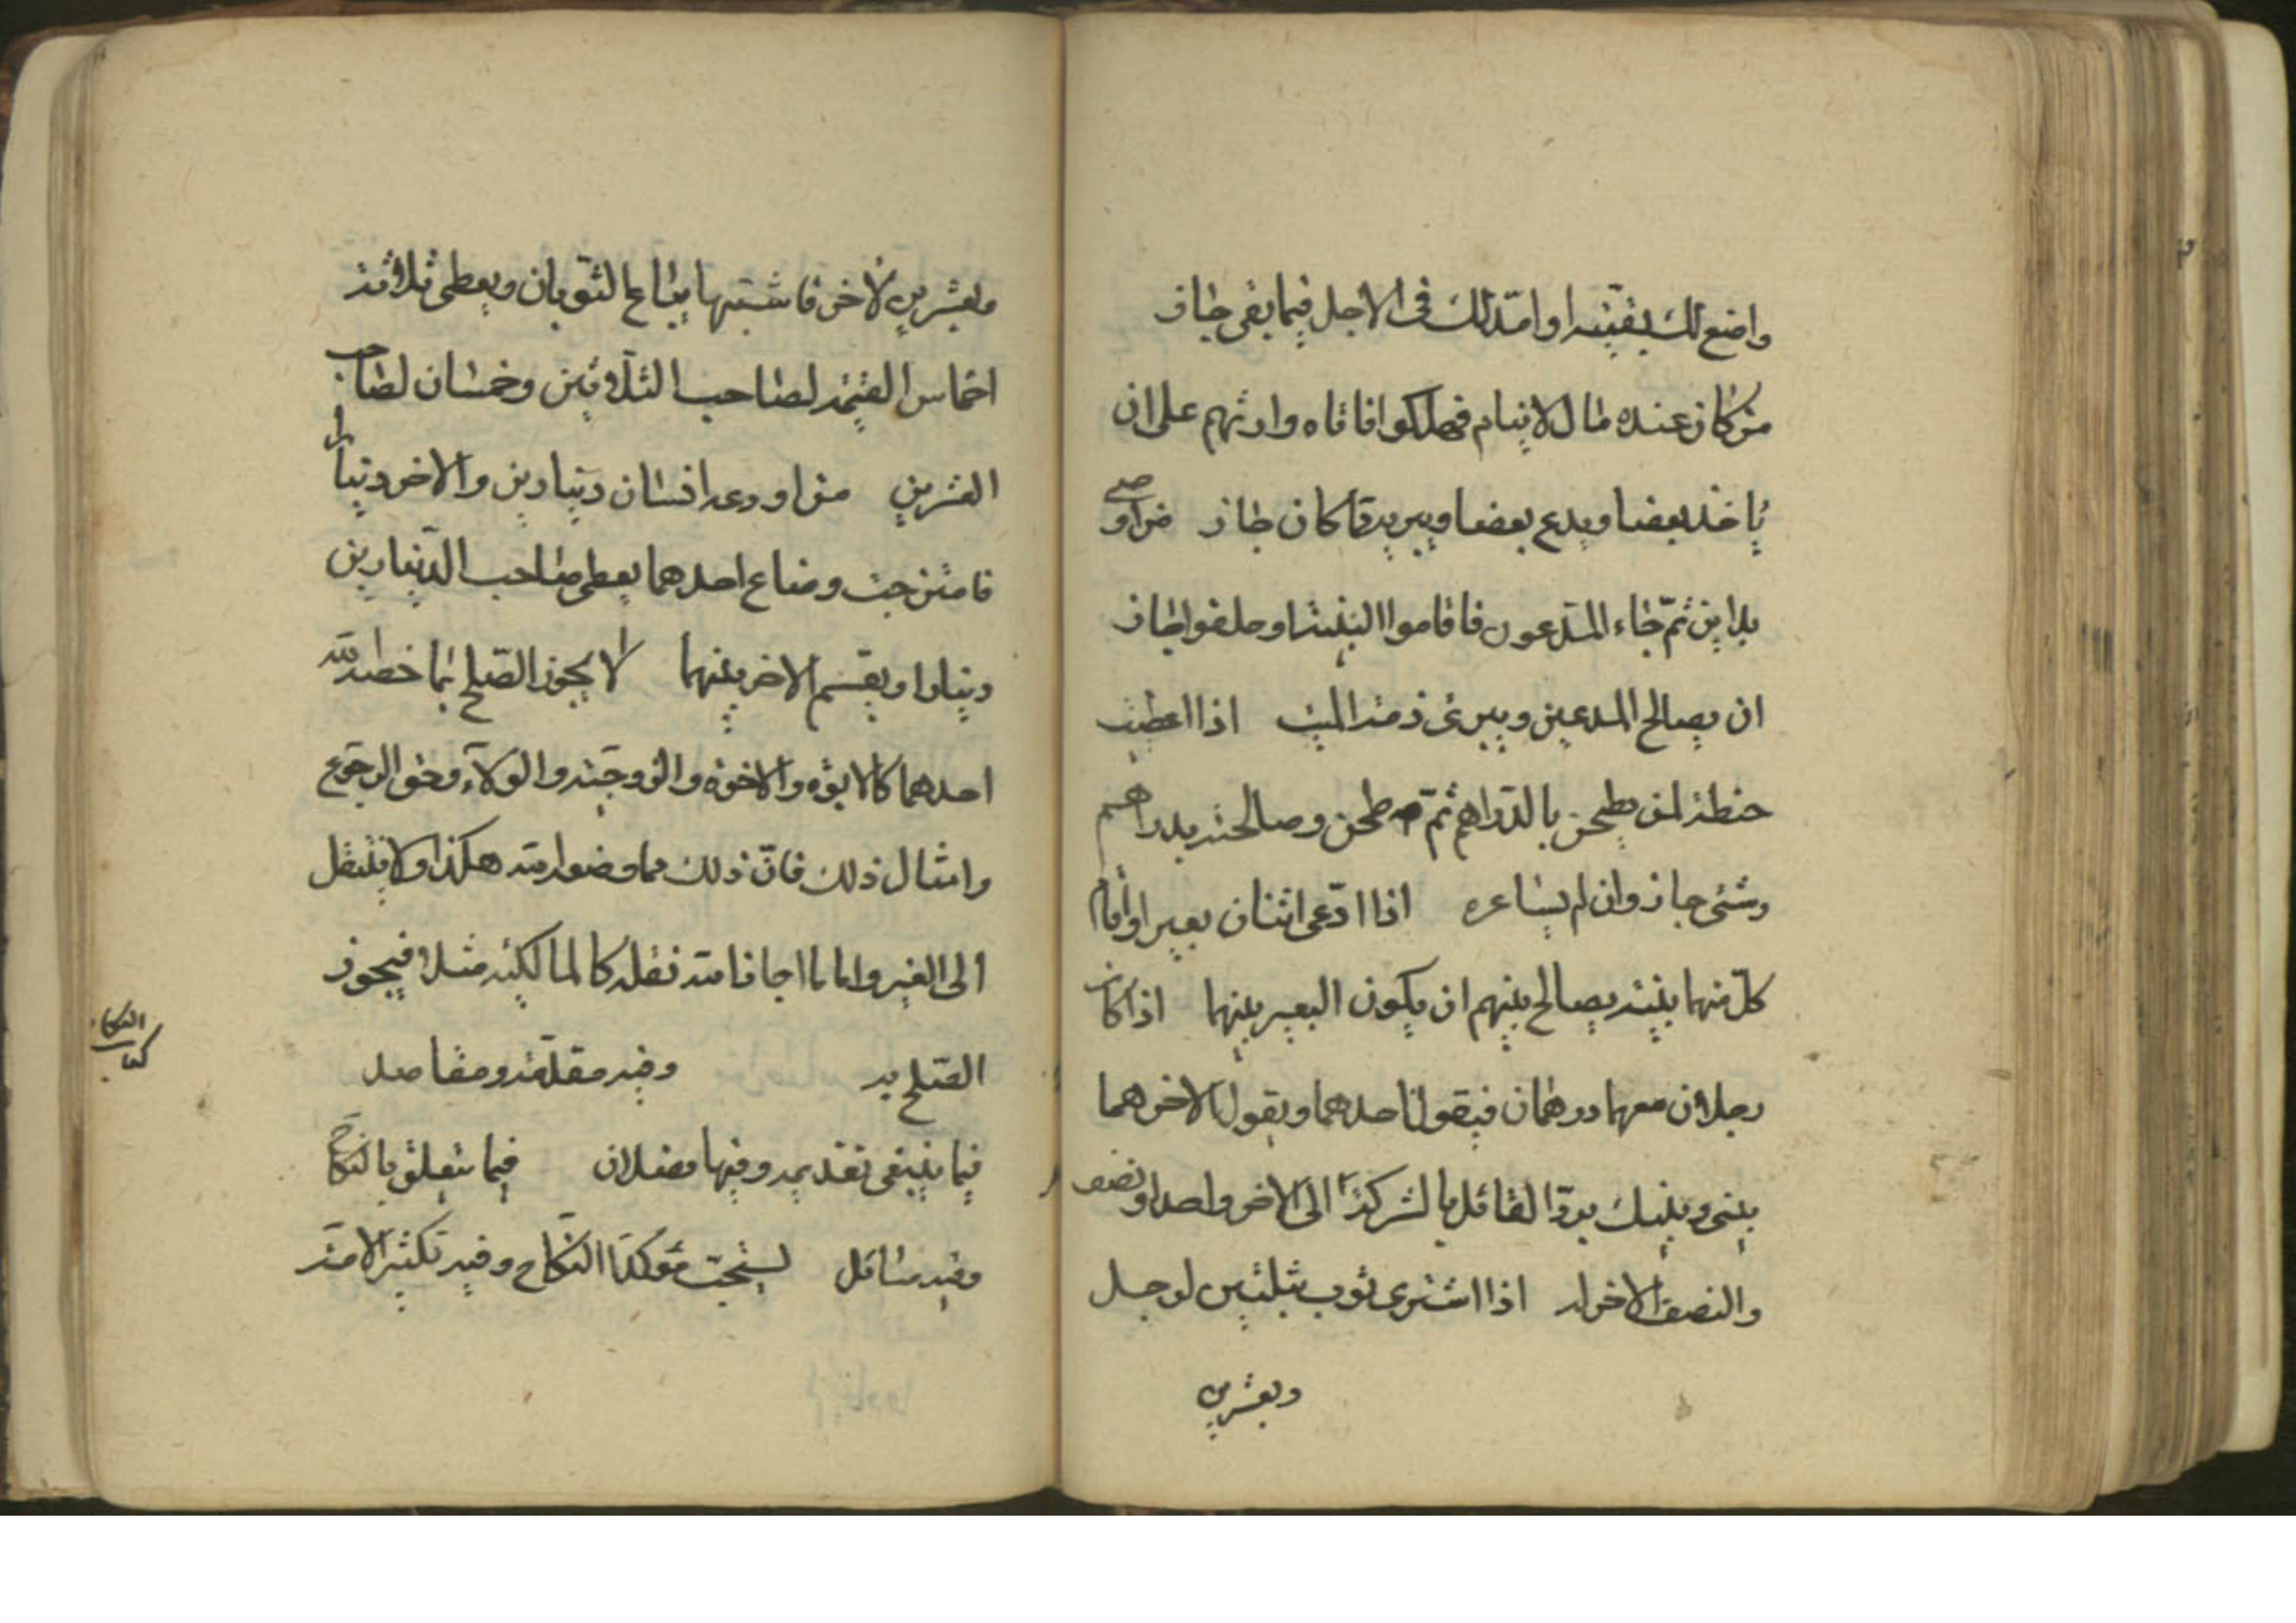 واضع لك بقيته او امد لك فى الاجل فيما بقى جاز
من كان عنده مال لايتام فهلكوا فاتاه وارثهم على ان
ياخذ بعضا ويدع بعضا ويبرء مما كان جاز من اوصى
بداين ثم جاء المدعون فاقاموا البينة او حلفوا جاز
ان يصالح المدعين ويبرئ ذمة الميت اذا اعطيت
حنطة لمن يطحن بالدراهم ثم طحن وصالحته بدراهم
وشئى جاز وان لم يساعره اذا ادعى اثنان بعيرا واقام
كل منهما بينة يصالح بينهم ان يكون البعير بينهما اذا كان
رجلان معهما درهمان فيقول احدهما ويقول الاخر هما
بينى وبينك يرد القائل بالشركة الى الاخر واحدا ونصف
والنصف الاخر له اذا اشترى ثوب بثلثين لرجل
وبعشرين
وبعشرين لاخر فاشتبها يباع الثوبان ويعطى ثلاثة
اخماس القيمة لصاحب الثلاثين وخمسان لصاحب
العشرين من اودعه انسان دينارين والاخر دينارا
فامتزجت وضاع احدهما يعطى صاحب الدينارين
دينارا ويقسم الاخر بينهما لا يجوز الصلح بما خصه الله
احدهما كالابوة والاخوة والزوجية والولاء وحق الرجوع
وامثال ذلك فان ذلك مما وضع له منه هكذا ولا ينتقل
الى الغير واما ما اجازنا منه نقله كالمالكية مثلا فيجوز
الصلح به وفيه مقدمة ومقاصد
كتاب النكاح
فيما ينبغى تقديمه وفيها فصلان فيما يتعلق بالنكاح
وفيه مسائل يستحب مؤكدا النكاح وفيه تكثير الامة